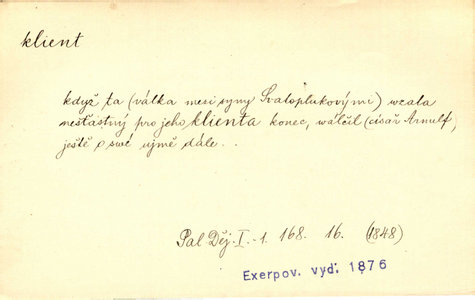 klient
když ta (válka mezi syny Svatoplukovými) vzala
nešťastný pro jeho klienta konec, válčil (císař Arnulf,
ještě o své újmě dále. .
Pal Děj. I. 1. 168. 16. (1848)
Exerpov. vyd. 1876